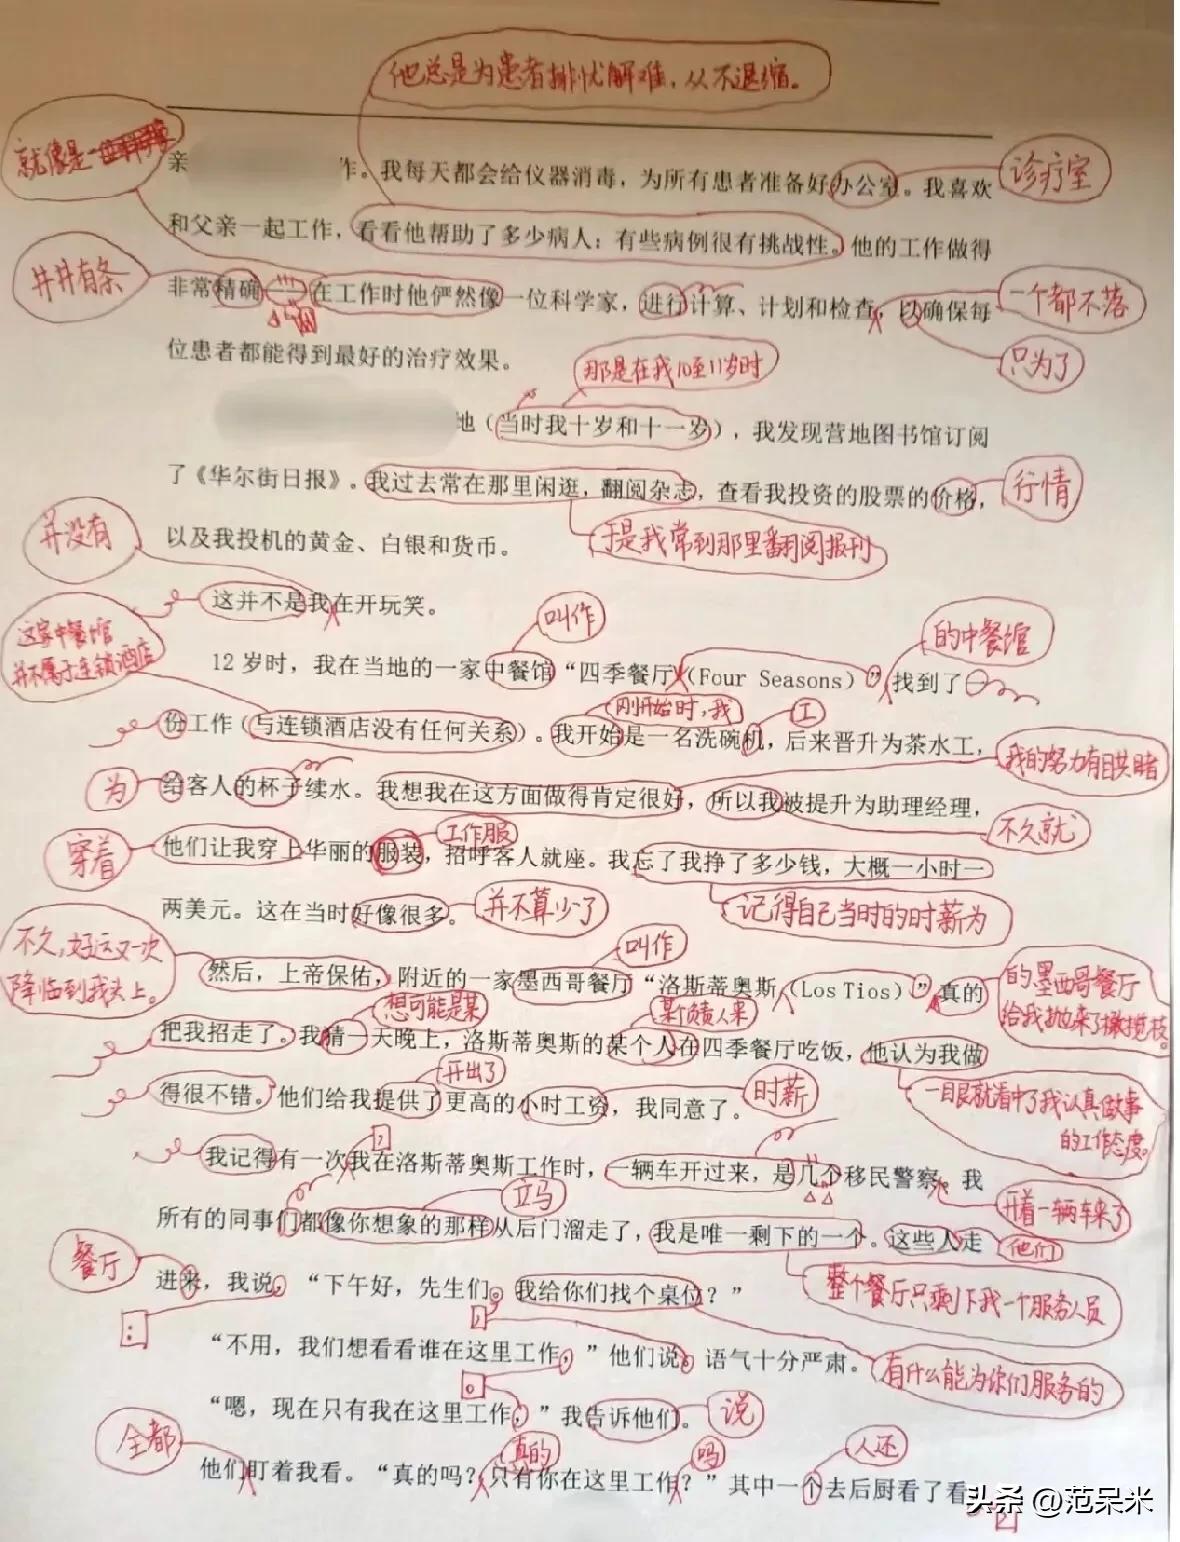 他总是为患者排忧解难，从不退缩。
就像是一
亲 作。我每天都会给仪器消毒，为所有患者准备好办公室。我喜欢
诊疗室
和父亲一起工作，看看他帮助了多少病人；有些病例很有挑战性。他的工作做得
井井有条
非常精确——在工作时他俨然像一位科学家，进行计算、计划和检查，以确保每
一个都不落
位患者都能得到最好的治疗效果。
只为了
那是在我10至11岁时
地（当时我十岁和十一岁），我发现营地图书馆订阅
了《华尔街日报》。我过去常在那里闲逛，翻阅杂志，查看我投资的股票的价格，
行情
并没有
以及我投机的黄金、白银和货币。
于是我常到那里翻阅报刊
这并不是我在开玩笑。
叫作
的中餐馆
这家中餐馆
并不属于连锁酒店
12 岁时，我在当地的一家中餐馆“四季餐厅（Four Seasons）”找到了一
刚开始时，我
工
份工作（与连锁酒店没有任何关系）。我开始是一名洗碗机，后来晋升为茶水工，
我的努力有目共睹
为
给客人的杯子续水。我想我在这方面做得肯定很好，所以我被提升为助理经理，
不久就
穿着
工作服
他们让我穿上华丽的服装，招呼客人就座。我忘了我挣了多少钱，大概一小时一
两美元。这在当时好像很多。
并不算少了
记得自己当时的时薪为
不久，好运又一次
降临到我头上。
叫作
然后，上帝保佑，附近的一家墨西哥餐厅“洛斯蒂奥斯（Los Tios）”真的
的墨西哥餐厅
给我抛来了橄榄枝。
想可能是某
某个负责人来
把我招走了。我猜一天晚上，洛斯蒂奥斯的某个人在四季餐厅吃饭，他认为我做
开出了
得很不错。他们给我提供了更高的小时工资，我同意了。
时薪
一眼就看中了我认真做事
的工作态度。
我记得有一次我在洛斯蒂奥斯工作时，一辆车开过来，是几个移民警察，我
立马
开着一辆车来了
所有的同事们都像你想象的那样从后门溜走了，我是唯一剩下的一个。这些人走
他们
餐厅
进来，我说，“下午好，先生们。我给你们找个桌位？”
整个餐厅只剩下我一个服务人员
“不用，我们想看看谁在这里工作，”他们说。语气十分严肃。
有什么能为你们服务的
“嗯，现在只有我在这里工作，”我告诉他们。
说
全都
真的
吗
人还
他们盯着我看。“真的吗？只有你在这里工作？”其中一个去后厨看了看
头条 @范呆米